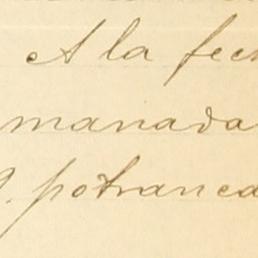 A la fec
manada
potranca